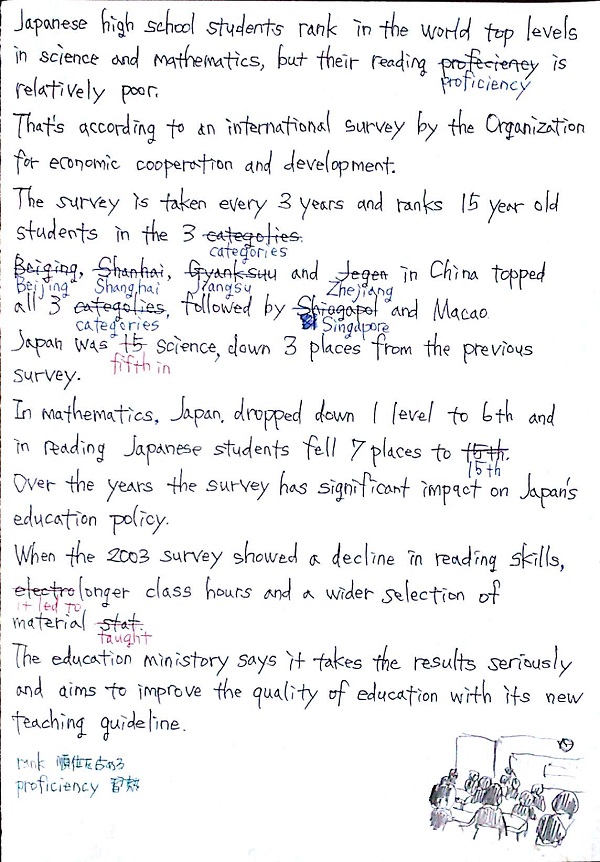 Japanese high school students rank in the world top levels
in science and mathematics, but their reading profeciency is
proficiency
relatively poor.
That's according to an international survey by the Organization
for economic cooperation and development.
The survey is taken every 3 years and ranks 15 year old
students in the 3 categolies.
categories
Beiging, Shanhai, Gyanksuu and Jegen in China topped
Beijing Shanghai Jiangsu Zhejiang
all 3 categolies, followed by Shiagapol and Macao.
categories Singapore
Japan was 15 science, down 3 places from the previous
fifth in
survey.
In mathematics, Japan. dropped down 1 level to 6th and
in reading Japanese students fell 7 places to 15th.
15th
Over the years the survey has significant impact on Japan's
education policy.
When the 2003 survey showed a decline in reading skills,
electro longer class hours and a wider selection of
it led to
material stat.
taught
The education ministory says it takes the results seriously
and aims to improve the quality of education with its new
teaching guideline.
rank 順位を占める
proficiency 習熟